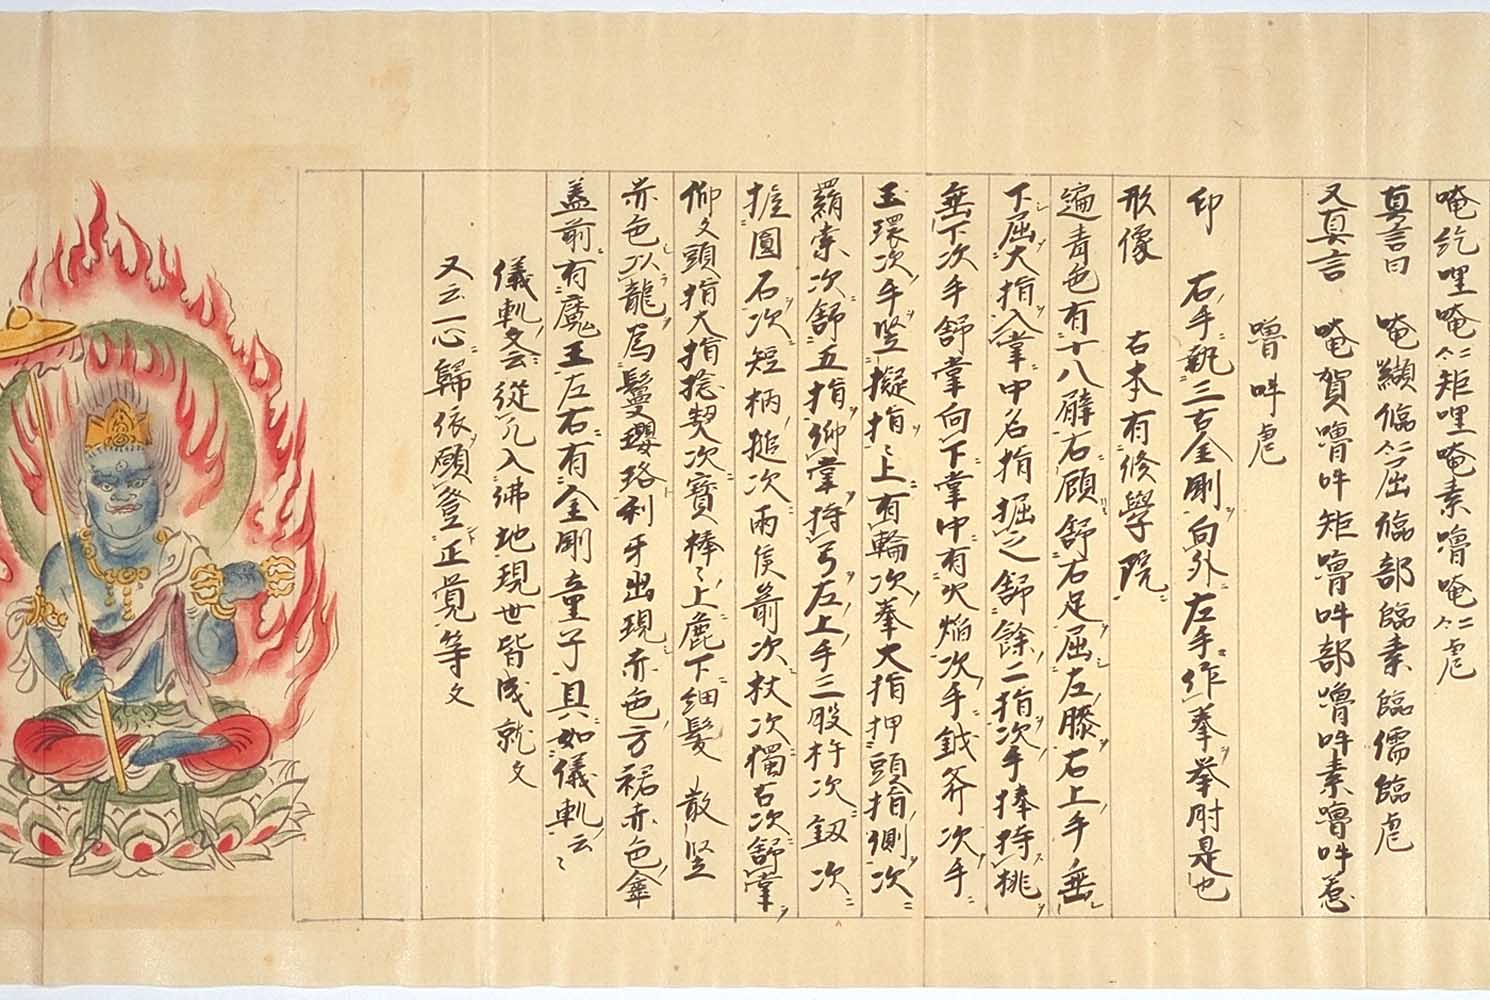 唵紇哩唵仁矩哩唵素嚕唵仁虐
真言曰 唵纈臨仁屈臨部臨素臨儒臨虐
又真言 唵賀嚕吽矩嚕吽部嚕吽素嚕吽惹
嚕吽虐
印 右手執三古金剛向外左手作拳挙肘是也
形像 右本有修學院
遍青色有十八臂右顧舒右足屈左膝右上手垂
下屈大指入掌中名指掘之舒餘二指次手捧持桃
垂下次手舒掌向下掌中有火焔次手鉞斧次手
玉環次手竪擬指〻上有輪次拳大指押頭指側次
羂索次舒五指仰掌持弓左上手三股杵次釼次
揸圓石次短柄搥次兩侯箭次杖次獨古次舒掌
仰文頭指大指捻契次寶棒〻上麁下細髪 散竪
赤色以龍為鬘瓔珞利牙出現赤色方裙赤色傘
盖前有魔王左右有金剛童子具如儀軌云〻
儀軌文云從凡入佛地現世皆成就文
又云一心歸依願登正覚等文